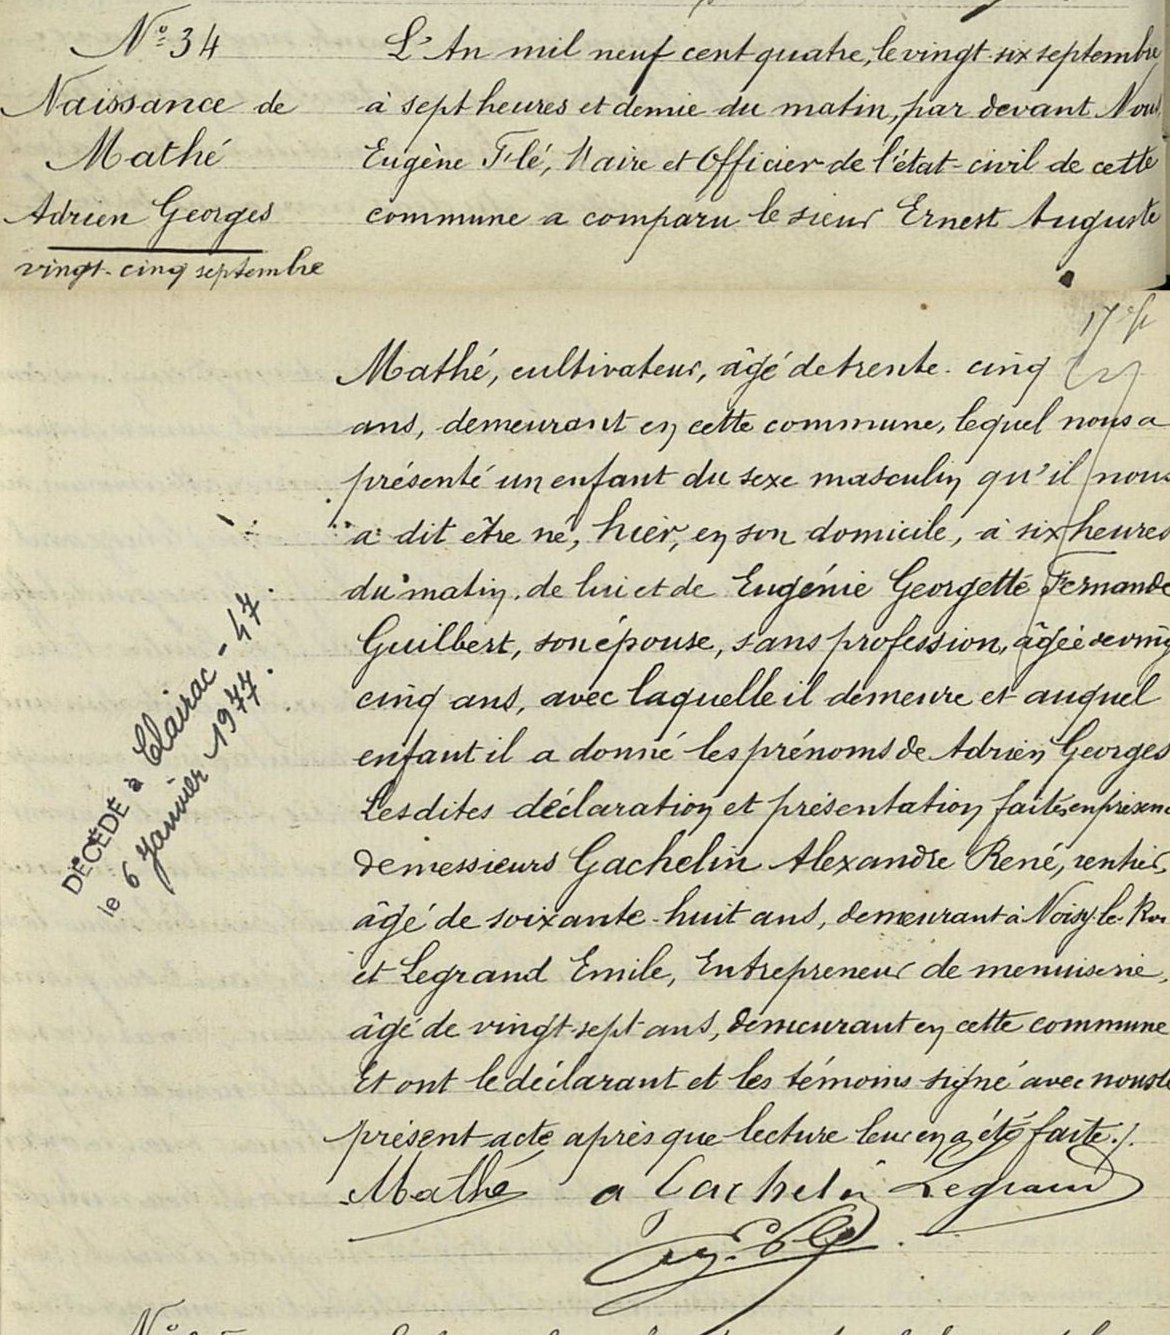 N° 34
Naissance de
Mathé
Adrien Georges
vingt-cinq septembre
L'An mil neuf cent quatre, le vingt-six septembre
à sept heures et demie du matin, par devant Nous
Eugène Flé, Maire et Officier de l'état-civil de cette
commune a comparu le sieur Ernest Auguste
Mathé, cultivateur, âgé de trente-cinq
ans, demeurant en cette commune, lequel nous a
présenté un enfant du sexe masculin qu'il nous
a dit être né, hier, en son domicile, à six heures
du matin, de lui et de Eugénie Georgette Fernande
Guilbert, son épouse, sans profession, âgée de vingt
cinq ans, avec laquelle il demeure et auquel
enfant il a donné les prénoms de Adrien Georges
Lesdites déclaration et présentation faites en présence
de messieurs Gachelin Alexandre René, rentier,
âgé de soixante-huit ans, demeurant à Noisy-le-Roi
et Legrand Emile, Entrepreneur de menuiserie,
âgé de vingt-sept ans, demeurant en cette commune
Et ont le déclarant et les témoins signé avec nous le
présent acte après que lecture leur en a été faite ./.
Mathé a Gachelin Legrand
DÉCÉDÉ à Clairac - 47.
le 6 Janvier 1977.